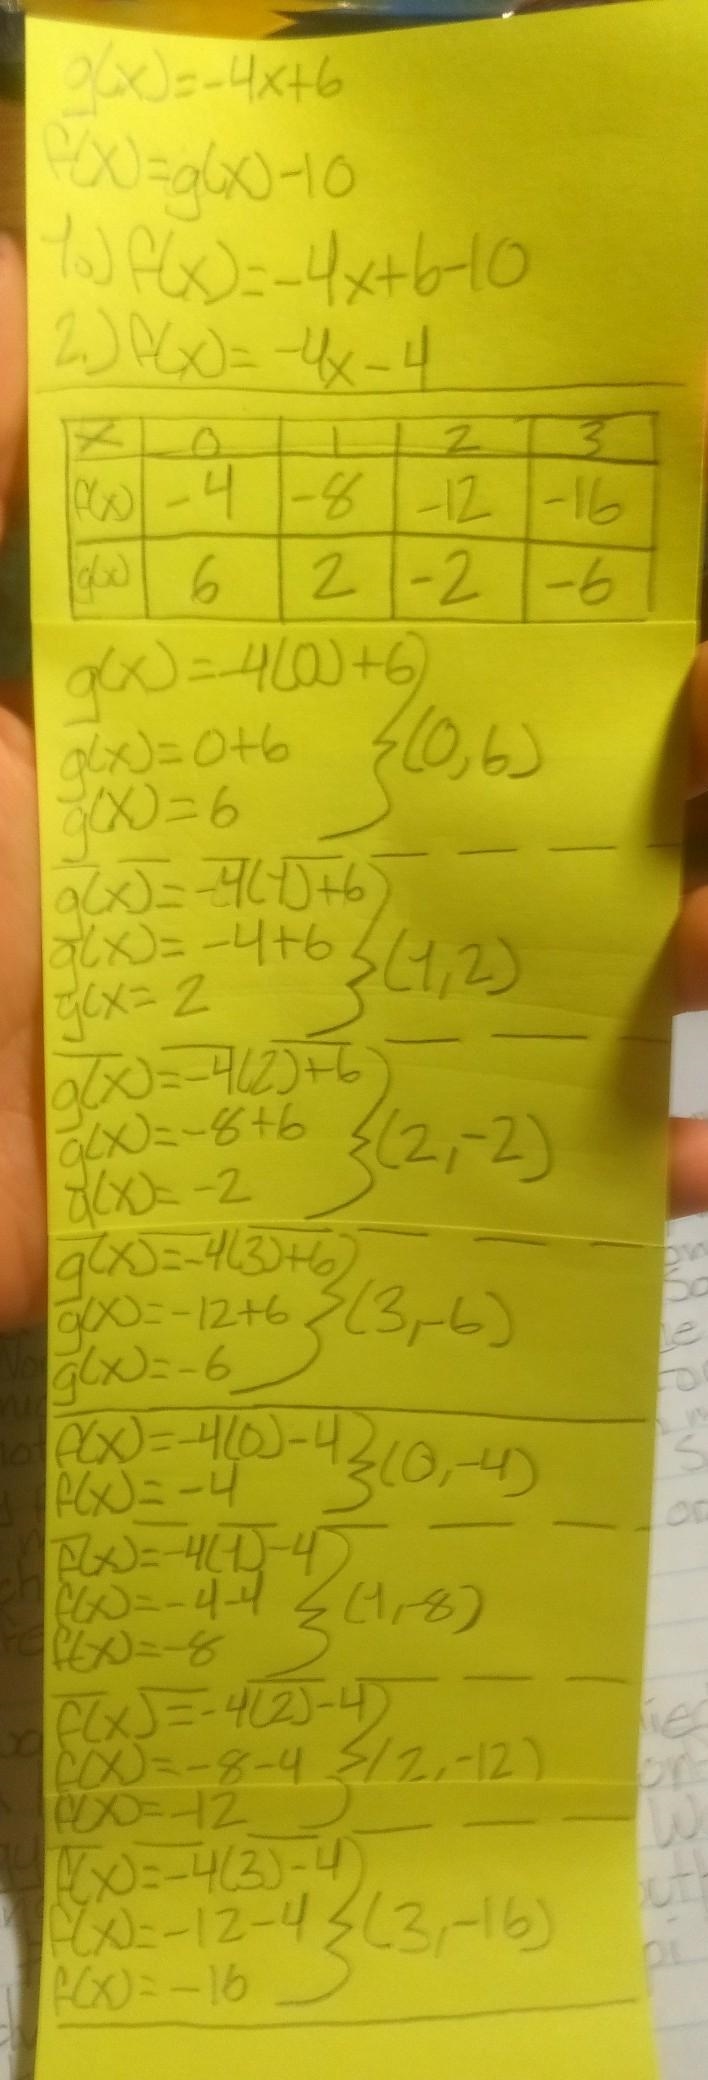 g(x)=-4x+6
f(x)=g(x)-10
1.) f(x)=-4x+6-10
2.) f(x)= -4x-4
x 0 1 2 3
f(x) -4 -8 -12 -16
g(x) 6 2 -2 -6
g(x)=-4(0)+6
g(x)=0+6 (0,6)
g(x)=6
g(x)=-4(1)+6
g(x)=-4+6 (1,2)
g(x=2
g(x)=-4(2)+6
g(x)=-8+6 (2,-2)
g(x)=-2
g(x)=-4(3)+6
g(x)=-12+6 (3,-6)
g(x)=-6
f(x)=-4(0)-4 (0,-4)
f(x)=-4
f(x)=-4(1)-4
f(x)=-4-4 (1,-8)
f(x)=-8
f(x)=-4(2)-4
f(x)=-8-4 (2,-12)
f(x)=-12
f(x)=-4(3)-4
f(x)=-12-4 (3,-16)
f(x)=-16